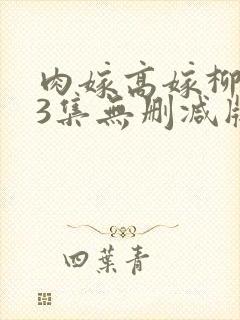 肉嫁高嫁柳
3集無删减版
四葉青